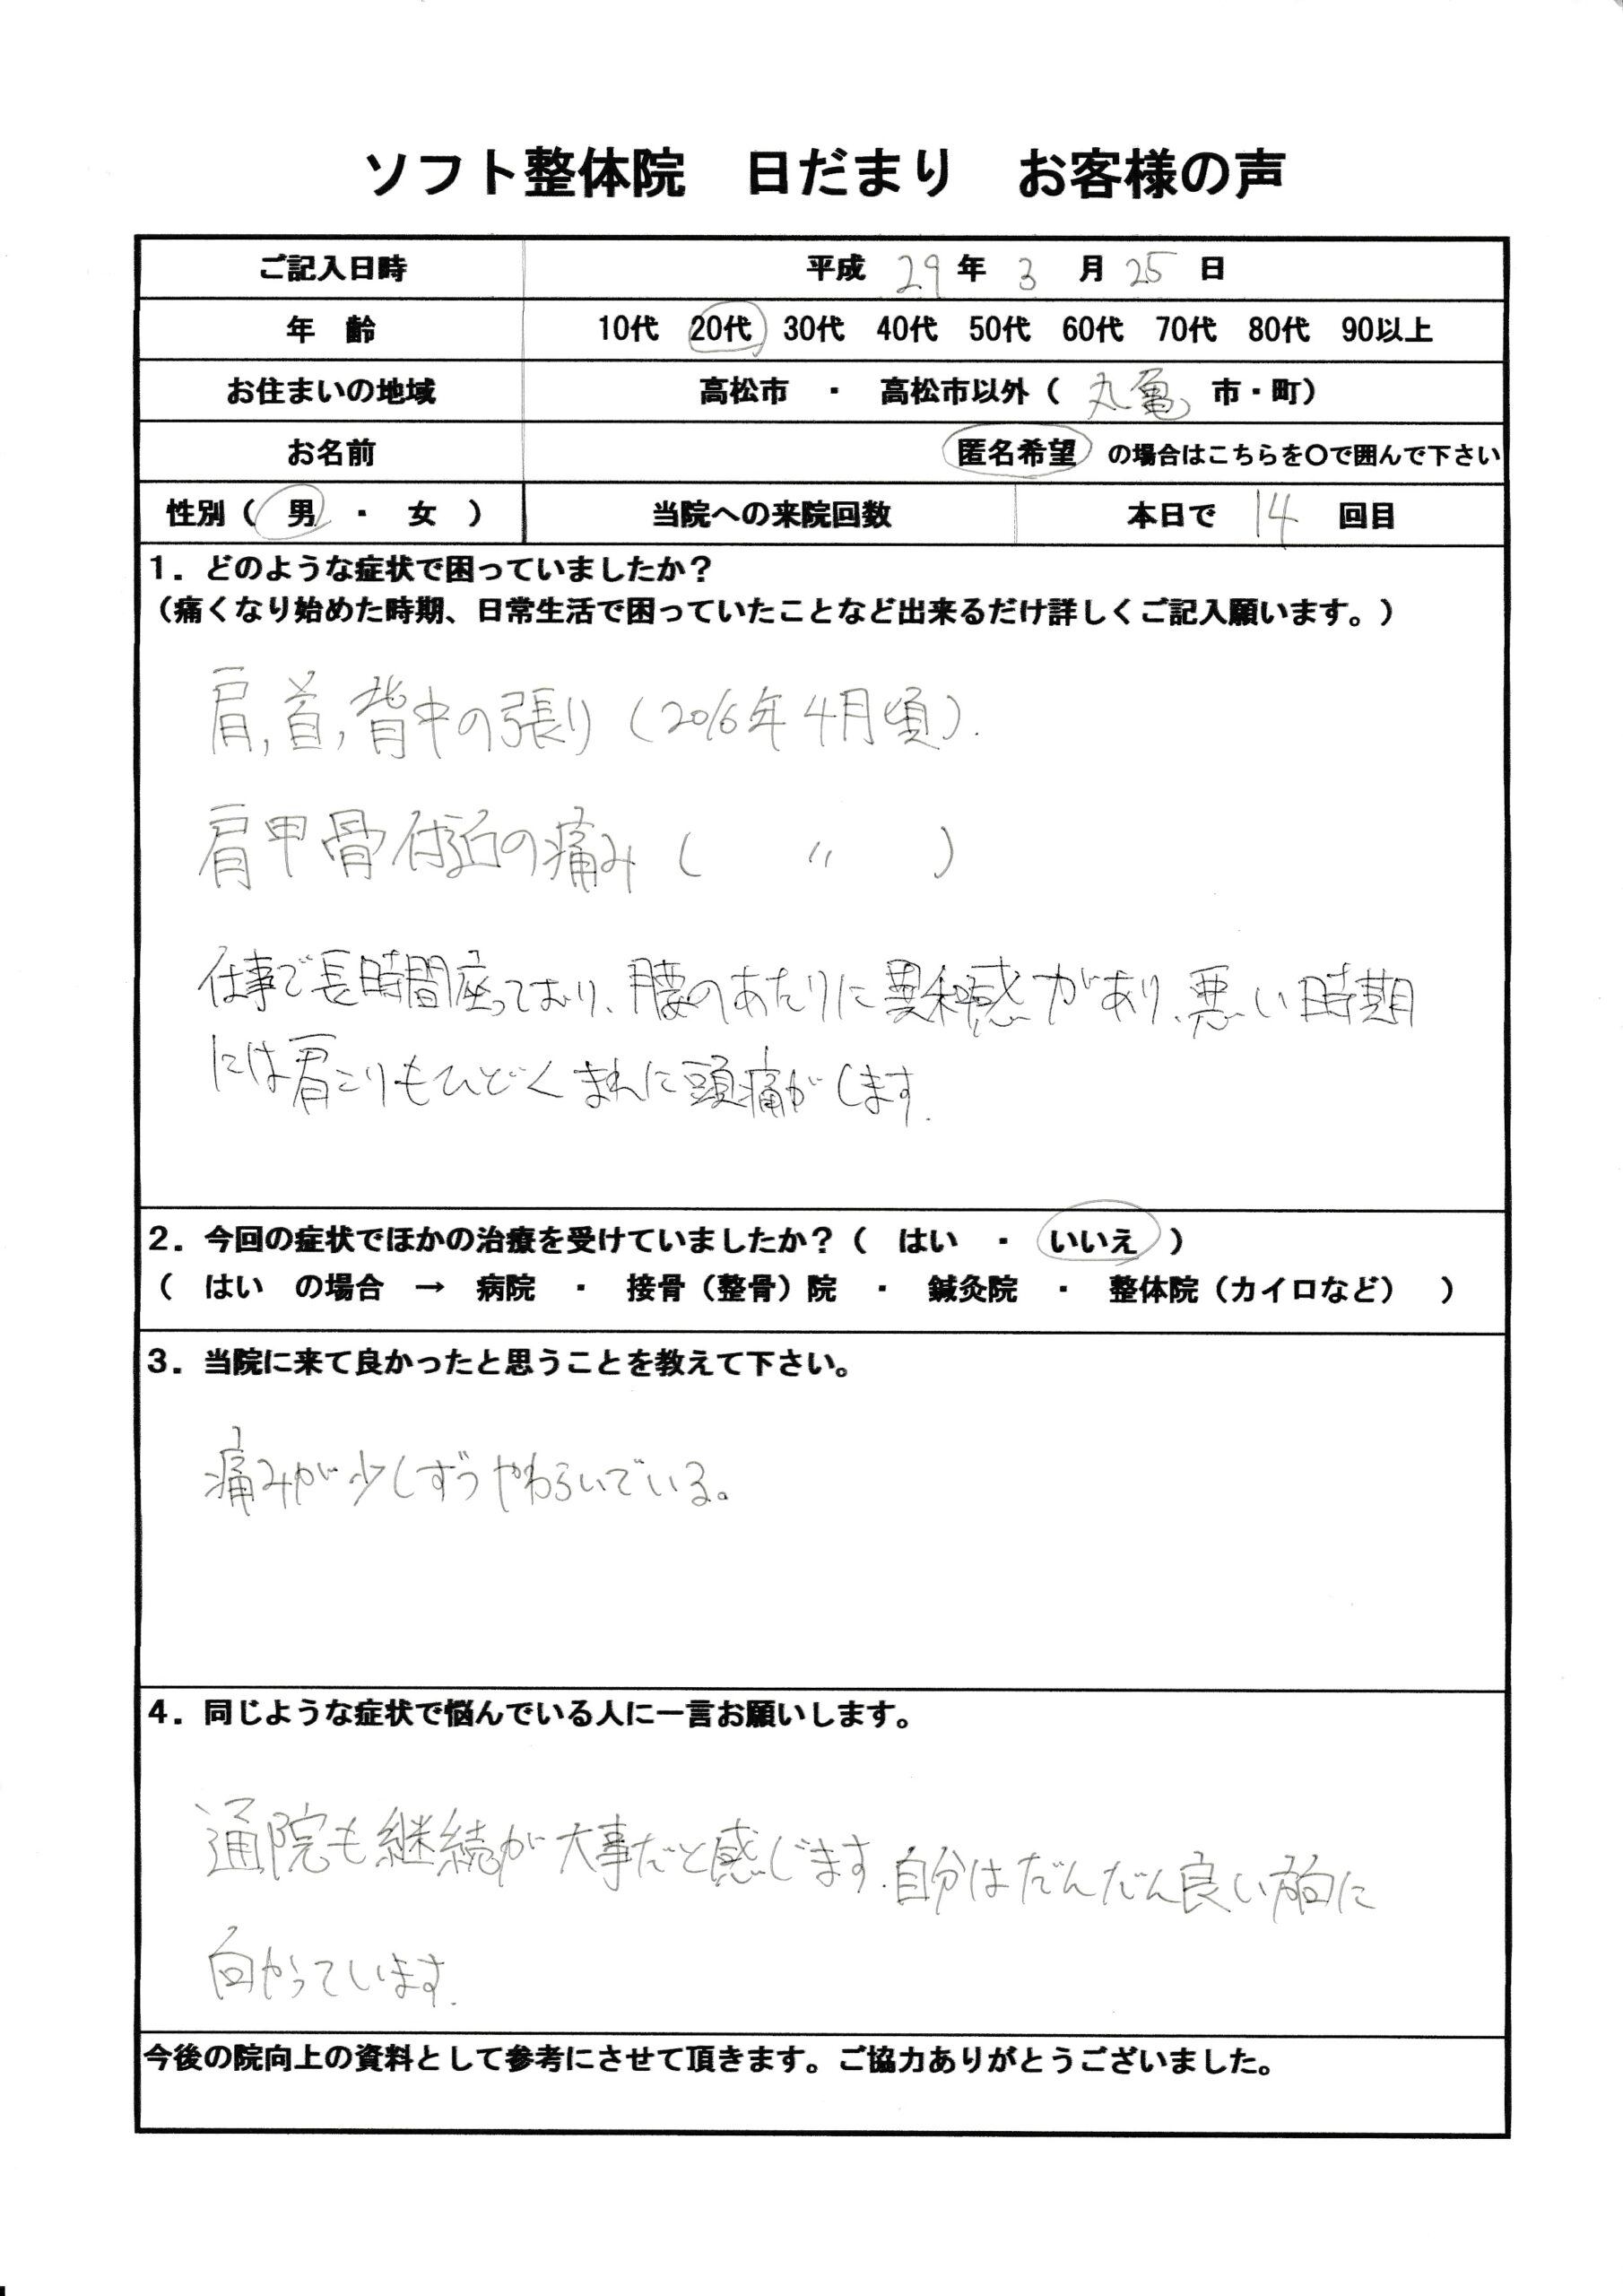 ソフト整体院　日だまり　お客様の声
ご記入日時　平成 29 年 3 月 25 日
年　齢　10代　20代　30代　40代　50代　60代　70代　80代　90以上
お住まいの地域　高松市　・　高松市以外（ 丸亀 市・町）
お名前　匿名希望　の場合はこちらを〇で囲んで下さい
性別（　男　・　女　）　当院への来院回数　本日で 14 回目
1．どのような症状で困っていましたか？
（痛くなり始めた時期、日常生活で困っていたことなど出来るだけ詳しくご記入願います。）
肩,首,背中の張り（2016年4月頃）.
肩甲骨付近の痛み（　〃　）
仕事で長時間座っており、腰のあたりに異和感があり、悪い時期
には肩こりもひどくまれに頭痛がします.
2．今回の症状でほかの治療を受けていましたか？（　はい　・　いいえ　）
（　はい　の場合　→　病院　・　接骨（整骨）院　・　鍼灸院　・　整体院（カイロなど）　）
3．当院に来て良かったと思うことを教えて下さい。
痛みが少しずつやわらいでいる。
4．同じような症状で悩んでいる人に一言お願いします。
通院も継続が大事だと感じます.自分はだんだん良い方向に
向かっています.
今後の院向上の資料として参考にさせて頂きます。ご協力ありがとうございました。